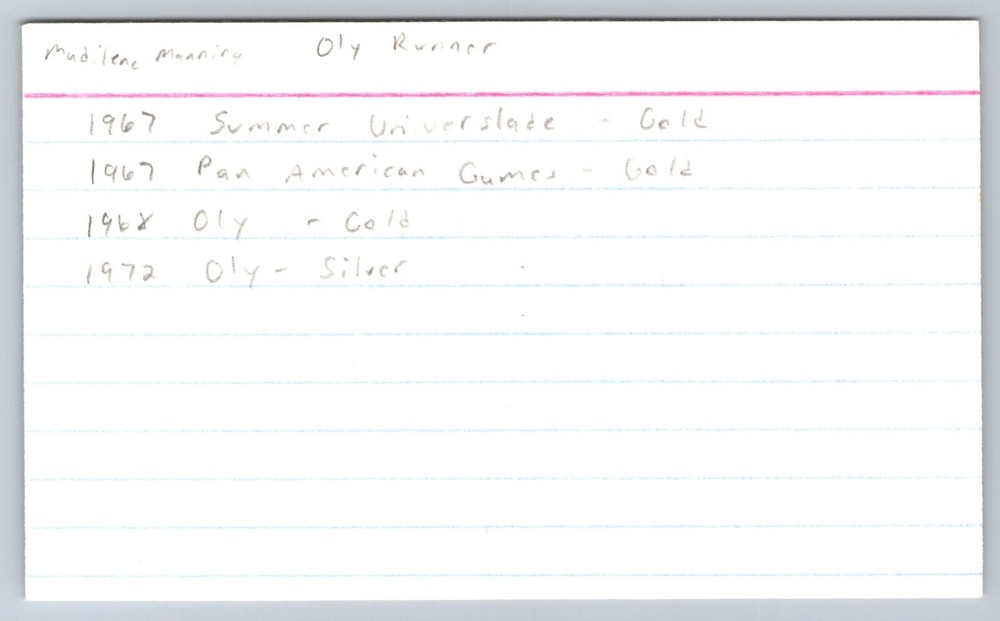 Madilene Manning Oly Runner
1967 Summer Universlade - Gold
1967 Pan American Games - Gold
1968 Oly - Gold
1972 Oly - Silver